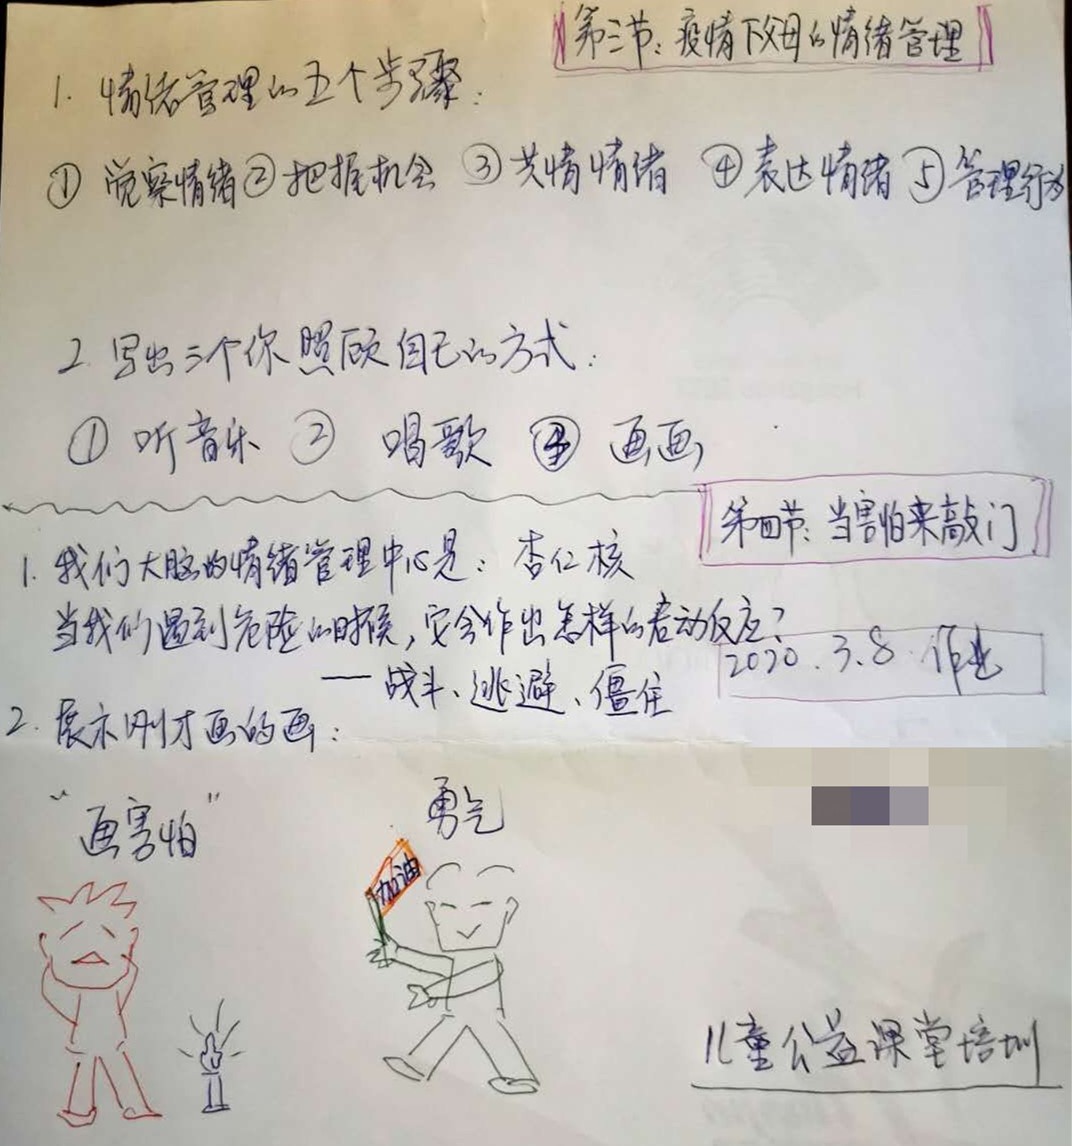 第三节：疫情下父母的情绪管理
1. 情绪管理的五个步骤：
① 觉察情绪 ② 把握机会 ③ 共情情绪 ④ 表达情绪 ⑤ 管理行为
2. 写出三个你照顾自己的方式：
① 听音乐 ② 唱歌 ③ 画画
第四节：当害怕来敲门
1. 我们大脑的情绪管理中心是：杏仁核
当我们遇到危险的时候，它会作出怎样的启动反应？
2020.3.8 作业
— 战斗、逃避、僵住
2. 展示刚才画的画：
"画害怕"
勇气
加油
儿童公益课堂培训